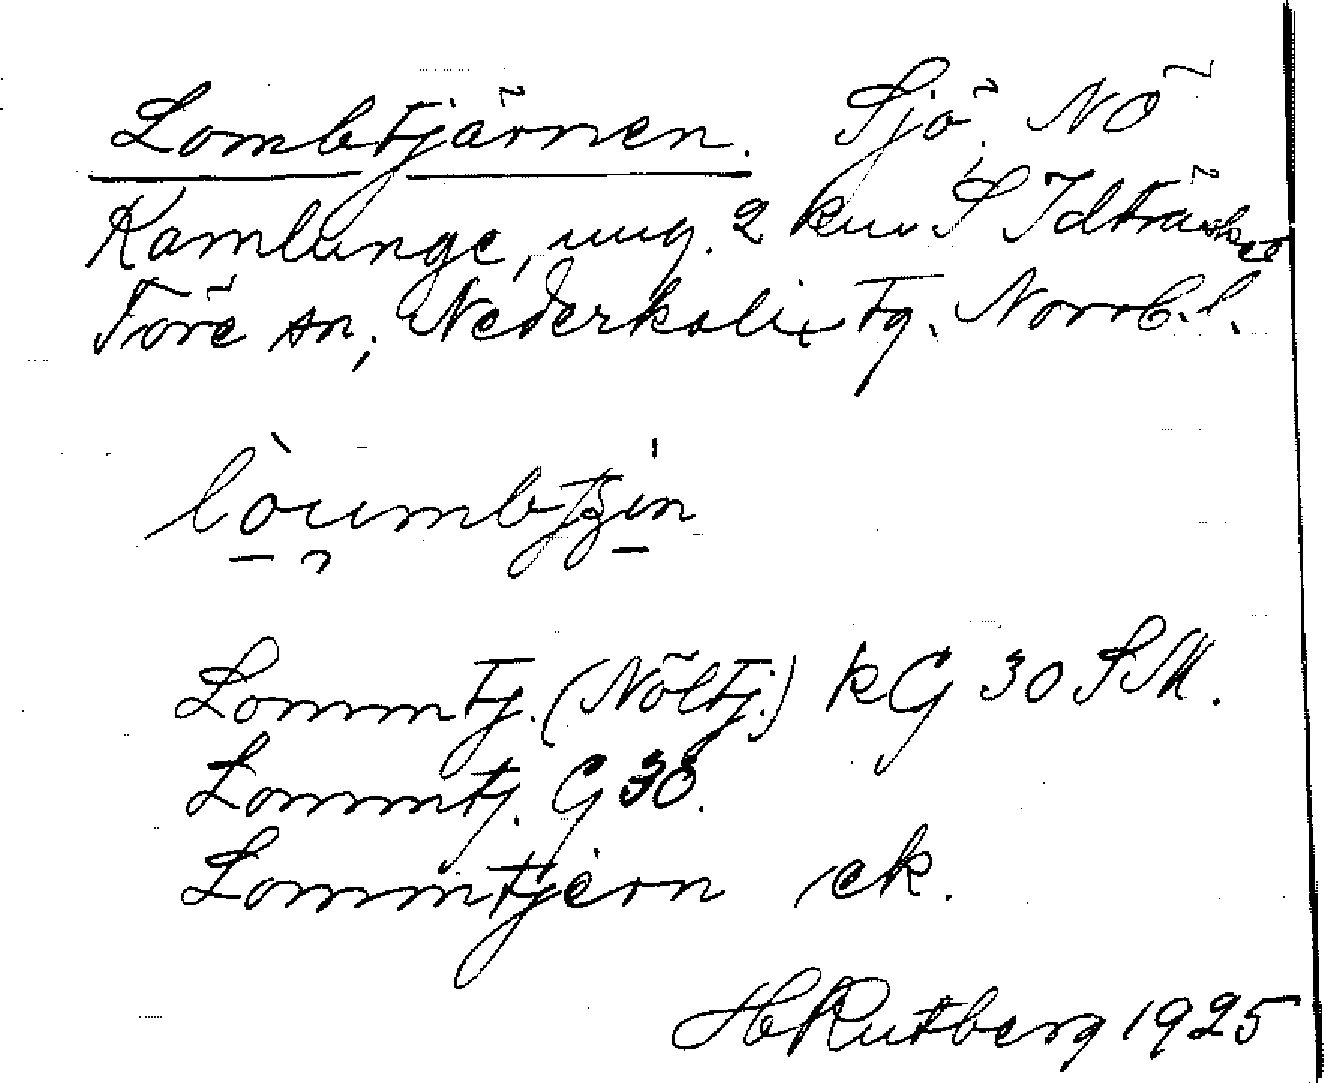 Lombtjärnen. Sjö, NÖ
Kamlunge, ung. 2 km S Idträsket
Töre sn, Nederkalix tg. Norrb. l.
lòumbtʒin
Lommtj. (Nöltj.) kG 30 SM.
Lommtj. G 30.
Lommtjern ek.
H Rutberg 1925